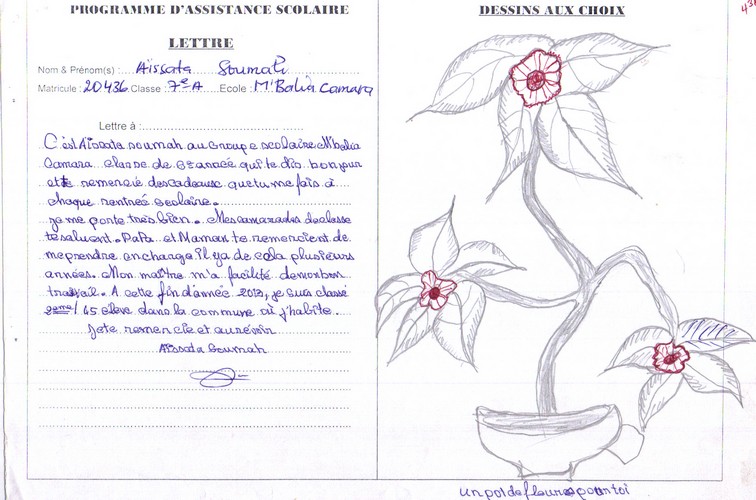 PROGRAMME D'ASSISTANCE SCOLAIRE
LETTRE
Nom & Prénom(s) : Aïssata Soumah
Matricule : 20436 Classe : 7e A Ecole : M'Balia Camara
Lettre à :
C'est Aïssata soumah au Groupe scolaire M'balia
Camara classe de 6e année qui te dis bonjour
et te remercie des cadeause que tu me fais à
chaque rentrée scolaire.
je me porte très bien. Mes camarades de classe
te saluent. PaPa et Maman te remercient de
me prendre en charge il ya de cela plusieurs
années. Mon maître m'a facilité de mon bon
travail. A cette fin d'année 2013, je suis classé
2eme / 65 elève dans la commune où j'habite.
Je te remercie et aurevoir
Aïssata Soumah
DESSINS AUX CHOIX
un pot de fleures pour toi